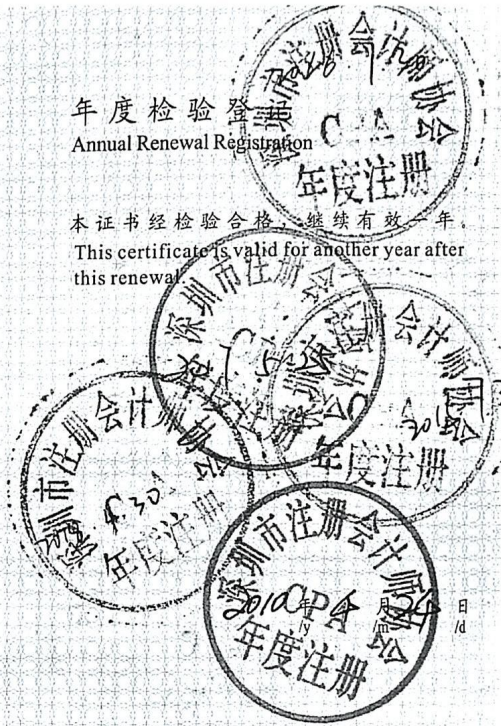 年度检验登记
Annual Renewal Registration
本证书经检验合格，继续有效一年。
This certificate is valid for another year after
this renewal.
深圳市注册会计师协会
CPA
年度注册
深圳市注册会
会计师协会
年度注册
深圳市注册会计师协会
CPA
4.30
年度注册
深圳市注册会计师协会
CPA
年度注册
2010 年 4 月 日
/y /m /d